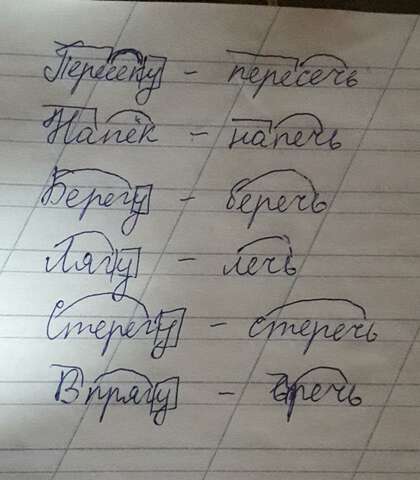 Пересеку - пересечь
Напёк - напечь
Берегу - беречь
Лягу - лечь
Стерегу - стеречь
Впрягу -